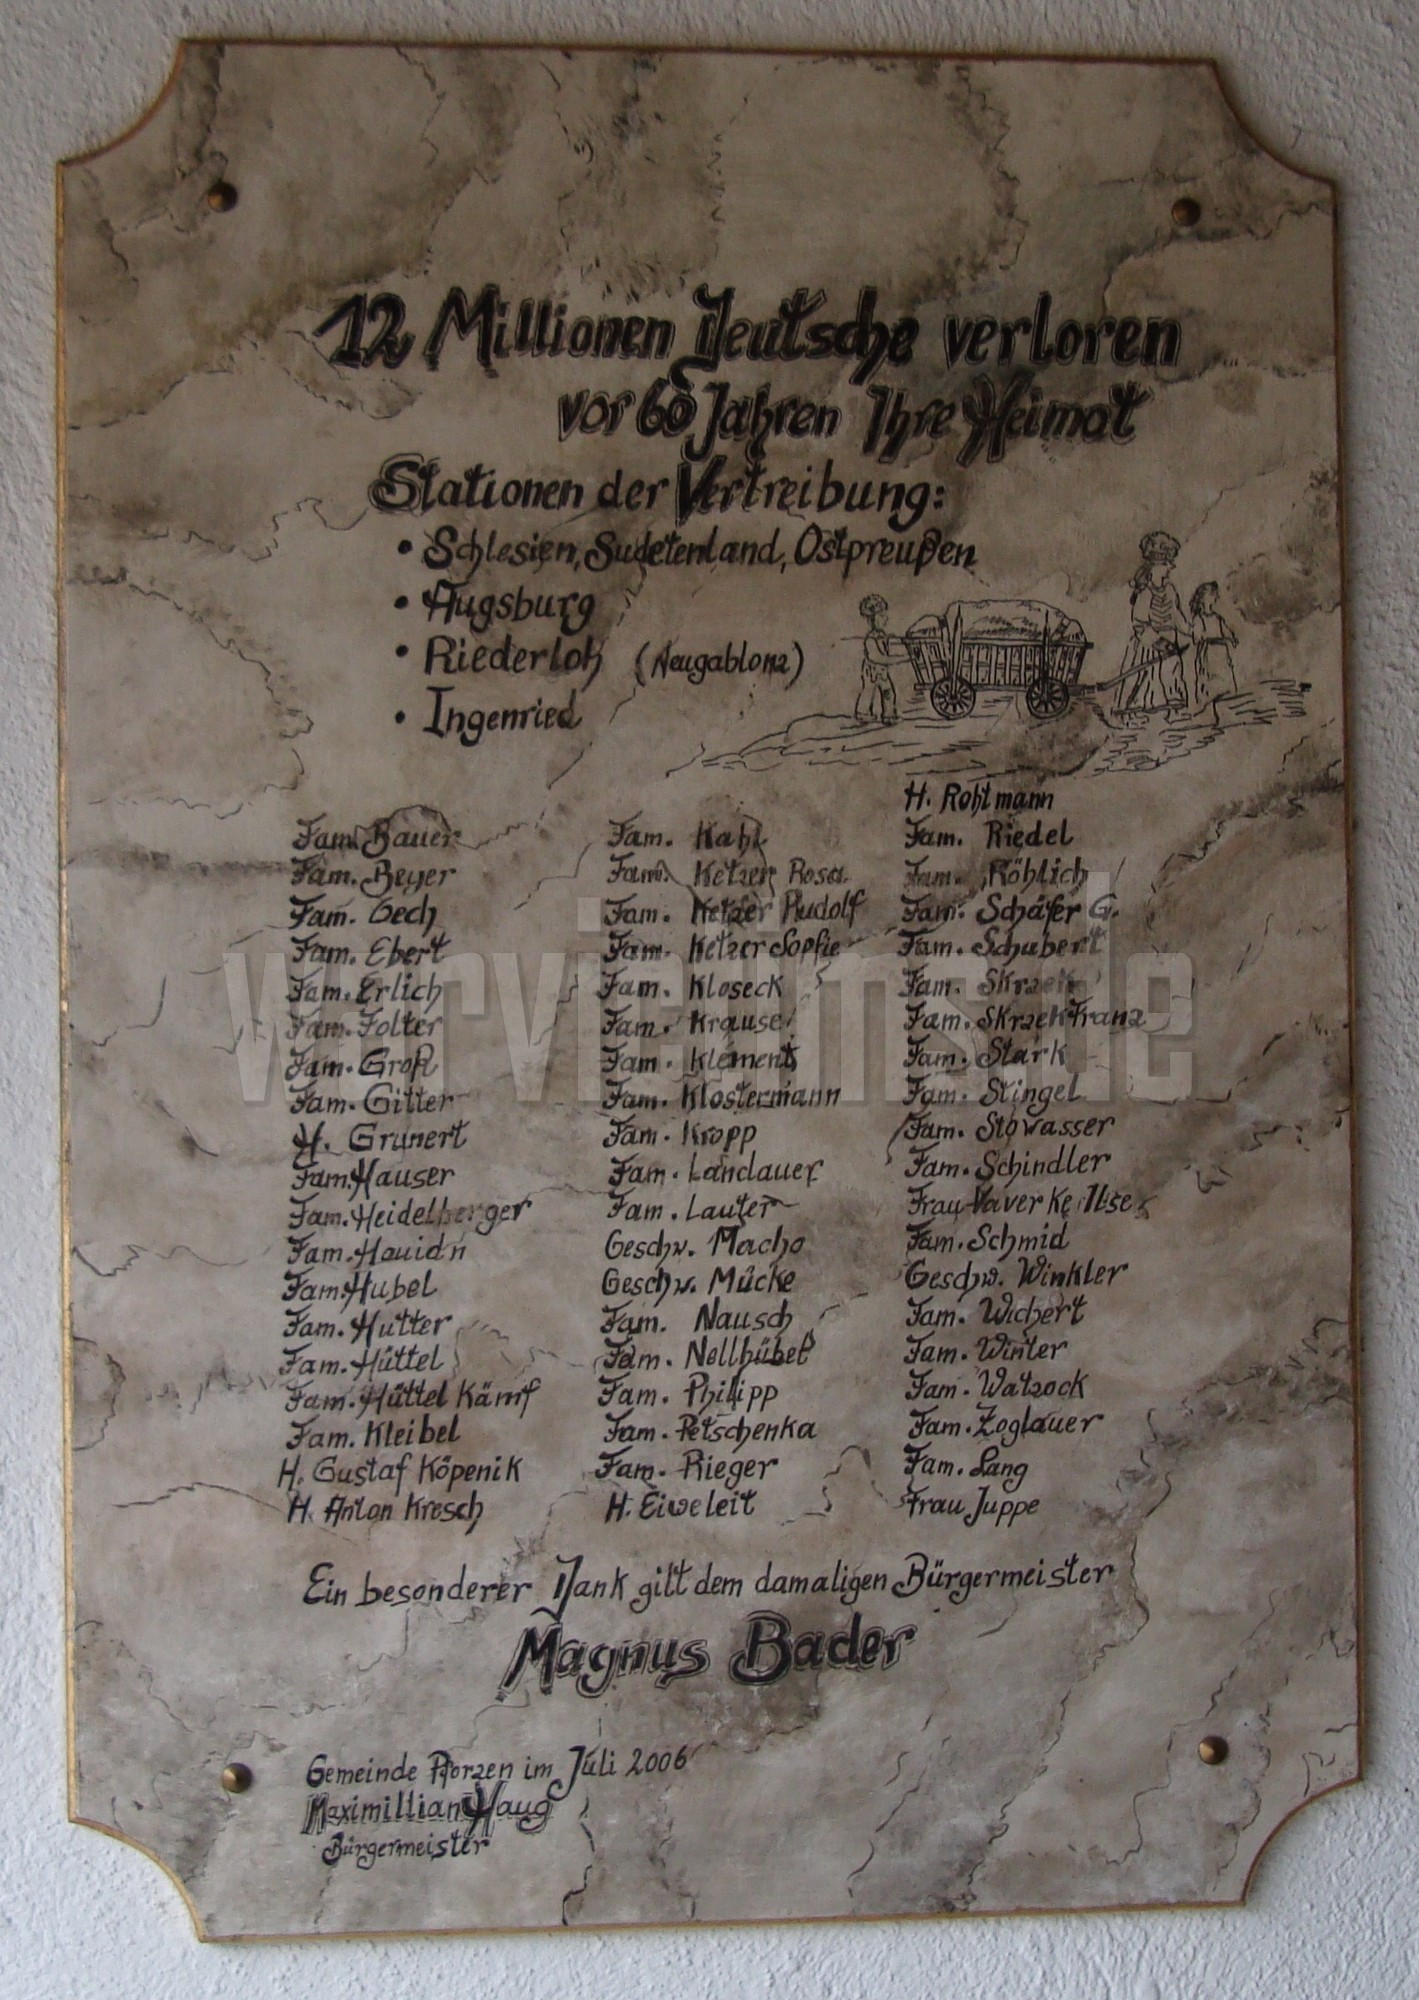 12 Millionen Deutsche verloren
vor 60 Jahren Ihre Heimat
Stationen der Vertreibung:
• Schlesien, Sudetenland, Ostpreußen
• Augsburg
• Riederloh (Neugablonz)
• Ingenried
Fam. Bauer
Fam. Beyer
Fam. Cech
Fam. Ebert
Fam. Erlich
Fam. Folter
Fam. Groß
Fam. Gitter
H. Grunert
Fam. Hauser
Fam. Heidelberger
Fam.
Fam. Hubel
Fam. Hutter
Fam. Hüttel
Fam. Hüttel Kämpf
Fam. Kleibel
H. Gustaf Köpenik
H. Anton Kresch
Fam. Kahl
Fam. Ketzer Rosa
Fam. Ketzer Rudolf
Fam. Ketzer Sopfie
Fam. Kloseck
Fam. Krause
Fam. Klement
Fam. Klostermann
Fam. Kropp
Fam. Landauer
Fam. Lauter
Geschw. Macho
Geschw. Mücke
Fam. Nausch
Fam. Nellhübel
Fam. Philipp
Fam. Petschenka
Fam. Rieger
H. Eiweleit
H. Rohtmann
Fam. Riedel
Fam. Röhlich
Fam. Schäfer G.
Fam. Schubert
Fam. Skrzek
Fam. Skrzek Franz
Fam. Stark
Fam. Stingel
Fam. Stowasser
Fam. Schindler
Frau Vaverke Ilse
Fam. Schmid
Geschw. Winkler
Fam. Wichert
Fam. Winter
Fam. Watzock
Fam. Zoglauer
Fam. Lang
Frau Juppe
Ein besonderer Dank gilt dem damaligen Bürgermeister
Magnus Bader
Gemeinde Pforzen im Juli 2006
Maximillian Haug
Bürgermeister